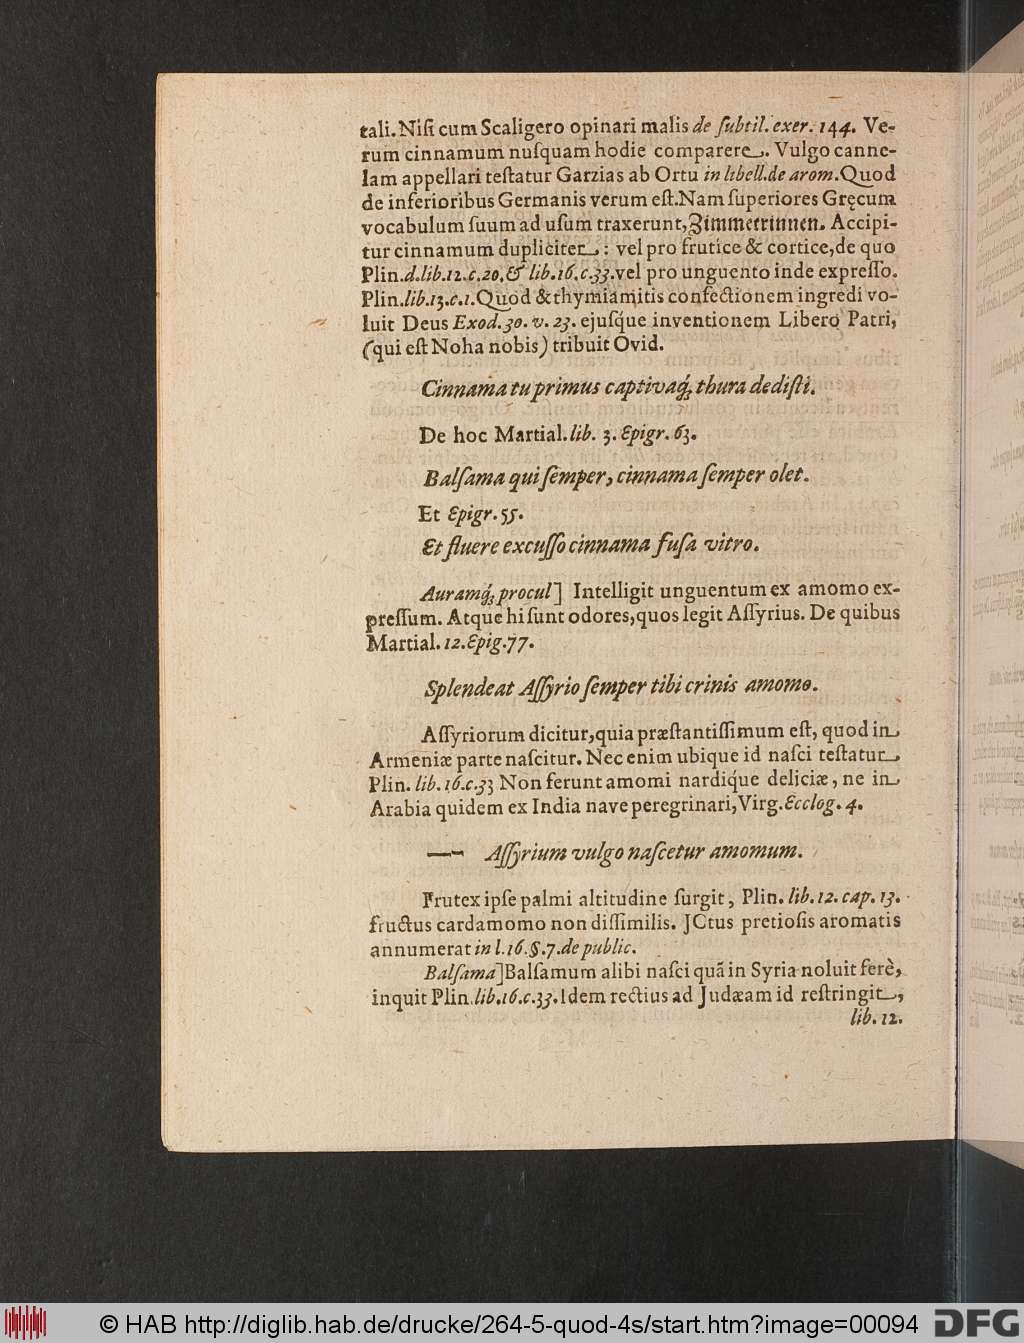 tali. Niſi cum Scaligero opinari malis de ſubtil. exer. 144. Ve-
rum cinnamum nuſquam hodie comparere. Vulgo canne-
lam appellari teſtatur Garzias ab Ortu in libell. de arom. Quod
de inferioribus Germanis verum eſt. Nam ſuperiores Gręcum
vocabulum ſuum ad uſum traxerunt, Zimmetrinnen. Accipi-
tur cinnamum dupliciter: vel pro frutice & cortice, de quo
Plin. d. lib. 12. c. 20. & lib. 16. c. 33. vel pro unguento inde expreſſo.
Plin. lib. 13. c. 1. Quod & thymiamitis confectionem ingredi vo-
luit Deus Exod. 30. v. 23. ejuſq́ue inventionem Libero Patri,
(qui eſt Noha nobis) tribuit Ovid.
Cinnama tu primus captivaq́; thura dediſti.
De hoc Martial. lib. 3. Epigr. 63.
Balſama qui ſemper, cinnama ſemper olet.
Et Epigr. 55.
Et fluere excuſſo cinnama fuſa vitro.
Auramq́; procul] Intelligit unguentum ex amomo ex-
preſſum. Atque hi ſunt odores, quos legit Aſſyrius. De quibus
Martial. 12. Epig. 77.
Splendeat Aſſyrio ſemper tibi crinis amomo.
Aſſyriorum dicitur, quia præſtantiſſimum eſt, quod in
Armeniæ parte naſcitur. Nec enim ubique id naſci teſtatur
Plin. lib. 16. c. 33 Non ferunt amomi nardiq́ue deliciæ, ne in
Arabia quidem ex India nave peregrinari, Virg. Ecclog. 4.
— Aſſyrium vulgo naſcetur amomum.
Frutex ipſe palmi altitudine ſurgit, Plin. lib. 12. cap. 13.
fructus cardamomo non diſſimilis. JCtus pretioſis aromatis
annumerat in l. 16. §. 7. de public.
Balſama] Balſamum alibi naſci quā in Syria noluit ferè,
inquit Plin. lib. 16. c. 33. Idem rectius ad Judæam id reſtringit,
lib. 12.
© HAB http://diglib.hab.de/drucke/264-5-quod-4s/start.htm?image=00094
DFG